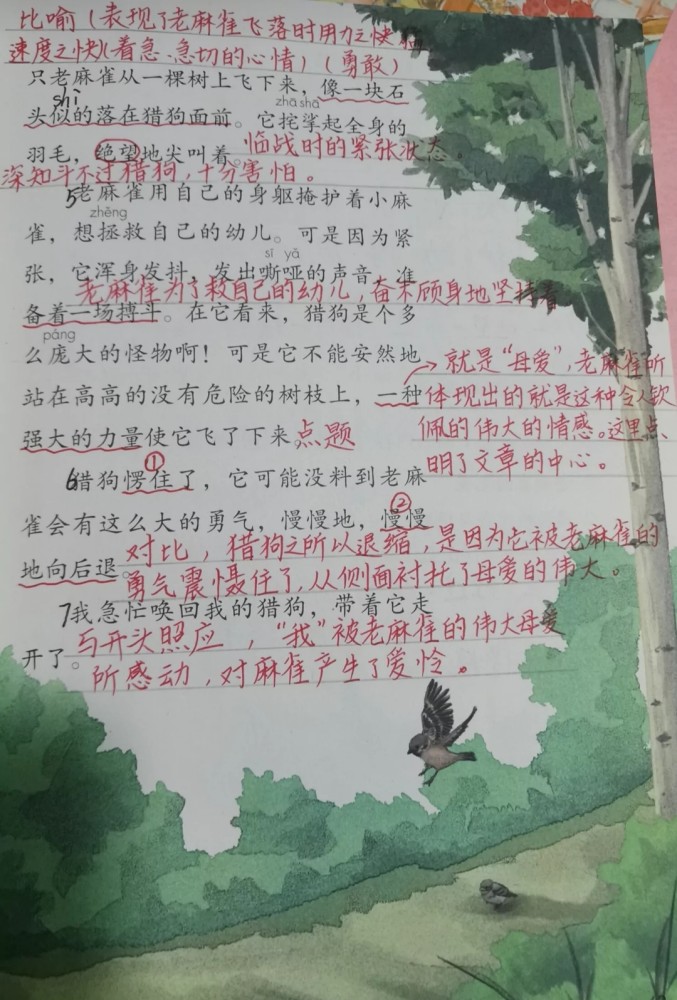 比喻(表现了老麻雀飞落时用力之快
速度之快)(着急、急切的心情)(勇敢)
只老麻雀从一棵树上飞下来，像一块石
shì
zhā shā
头似的落在猎狗面前。它挓挲起全身的
羽毛，绝望地尖叫着。临战时的紧张状态。
深知斗不过猎狗，十分害怕。
5老麻雀用自己的身躯掩护着小麻
zhěng
雀，想拯救自己的幼儿。可是因为紧
sī yǎ
张，它浑身发抖，发出嘶哑的声音，准
老麻雀为了救自己的幼儿，奋不顾身地坚持着
备着一场搏斗。在它看来，猎狗是个多
páng
么庞大的怪物啊！可是它不能安然地
站在高高的没有危险的树枝上，一种
强大的力量使它飞了下来 点题
就是“母爱”，老麻雀所
体现出的就是这种令人钦
佩的伟大的情感。这里点
明了文章的中心。
①
6猎狗愣住了，它可能没料到老麻
②
雀会有这么大的勇气，慢慢地，慢慢
地向后退。
对比，猎狗之所以退缩，是因为它被老麻雀的
勇气震慑住了，从侧面衬托了母爱的伟大。
7我急忙唤回我的猎狗，带着它走
开了。
与开头照应，“我”被老麻雀的伟大母爱
所感动，对麻雀产生了爱怜。